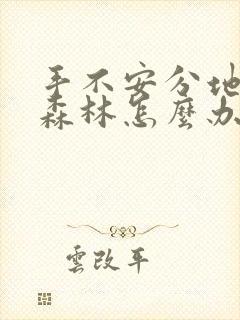 手不安分地
森林怎麼办
雲改平